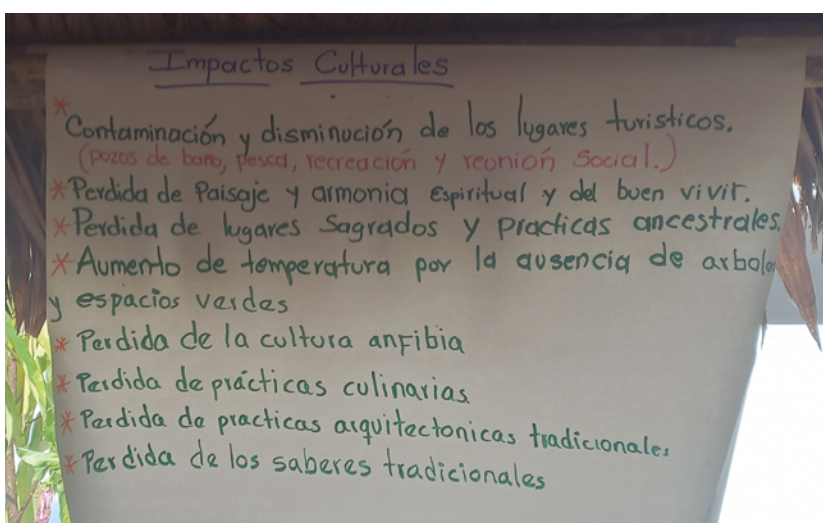 Impactos Culturales
* Contaminación y disminución de los lugares turisticos.
(pozos de baño, pesca, recreación y reunión social.)
* Perdida de Paisaje y armonia Espiritual y del buen vivir.
* Perdida de lugares Sagrados y Practicas ancestrales.
* Aumento de temperatura por la ausencia de arboles
y espacios verdes
* Perdida de la cultura anfibia
* Perdida de prácticas culinarias
* Perdida de practicas arquitectonicas tradicionales
* Perdida de los saberes tradicionales